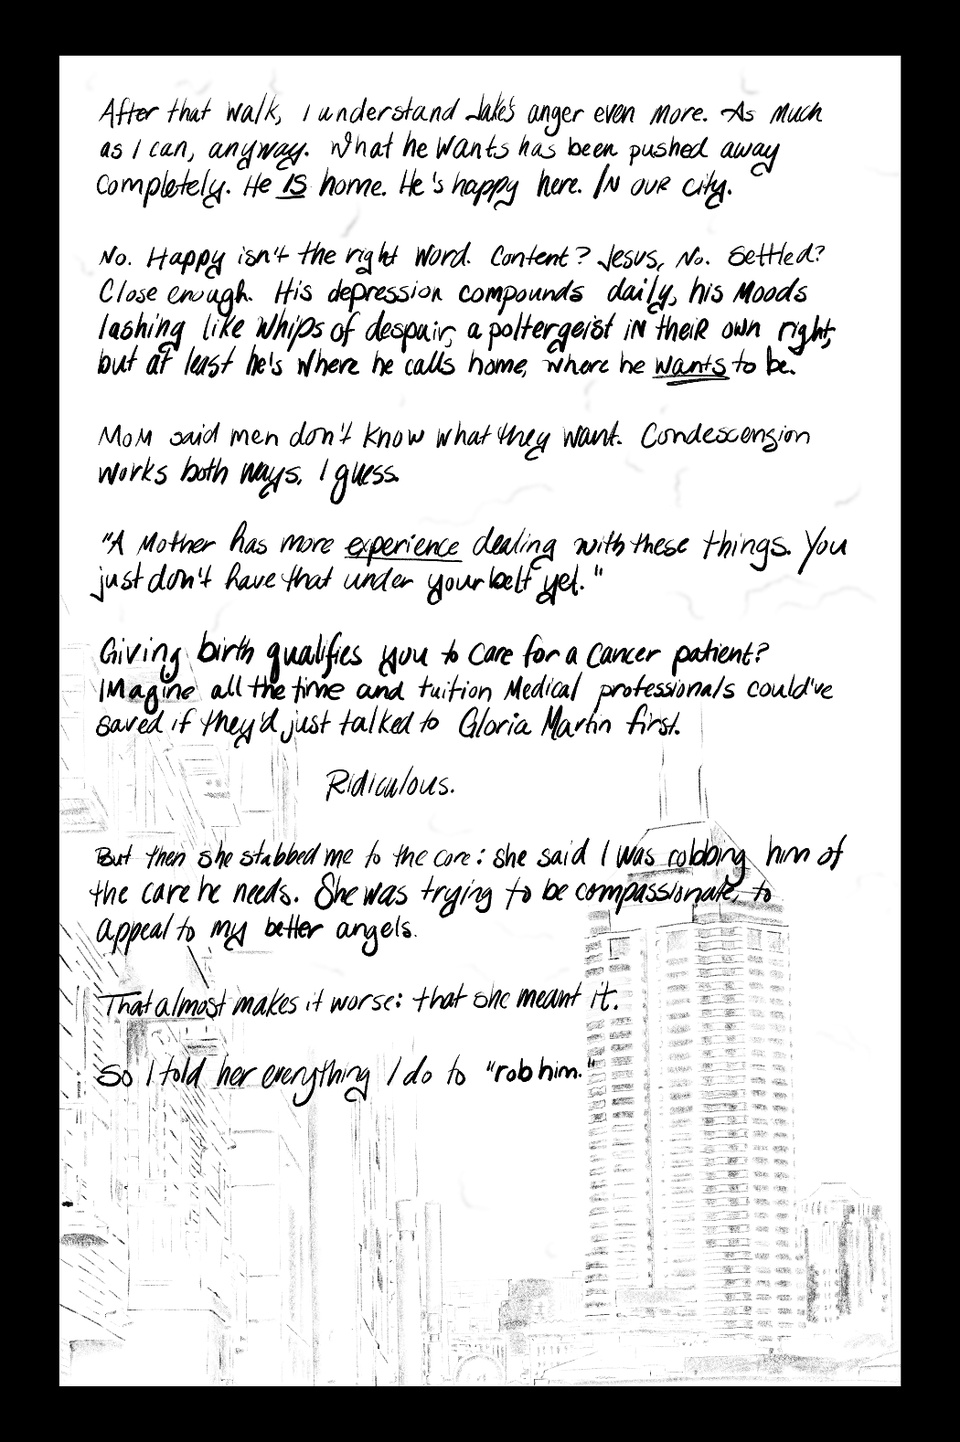 After that walk, I understand Jake's anger even more. As much
as I can, anyway. What he wants has been pushed away
completely. He IS home. He's happy here. IN our city.
No. Happy isn't the right word. Content? Jesus, No. Settled?
Close enough. His depression compounds daily, his moods
lashing like whips of despair, a poltergeist in their own right,
but at least he's where he calls home, where he wants to be.
Mom said men don't know what they want. Condescension
works both ways, I guess.
"A mother has more experience dealing with these things. You
just don't have that under your belt yet."
Giving birth qualifies you to care for a cancer patient?
Imagine all the time and tuition medical professionals could've
saved if they'd just talked to Gloria Martin first.
Ridiculous.
But then she stabbed me to the core: she said I was robbing him of
the care he needs. She was trying to be compassionate, to
appeal to my better angels.
That almost makes it worse: that she meant it.
So I told her everything I do to "rob him."